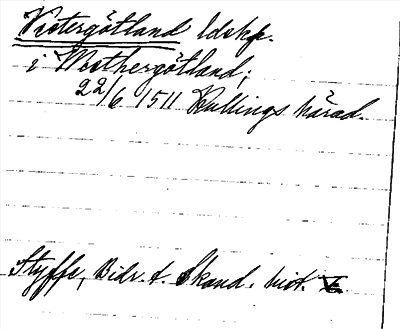 Västergötland ldskp.
i Westhergötland;
22/6 1511 Kullings härad.
Styffe, Bidr. t. Skand. hist. V.